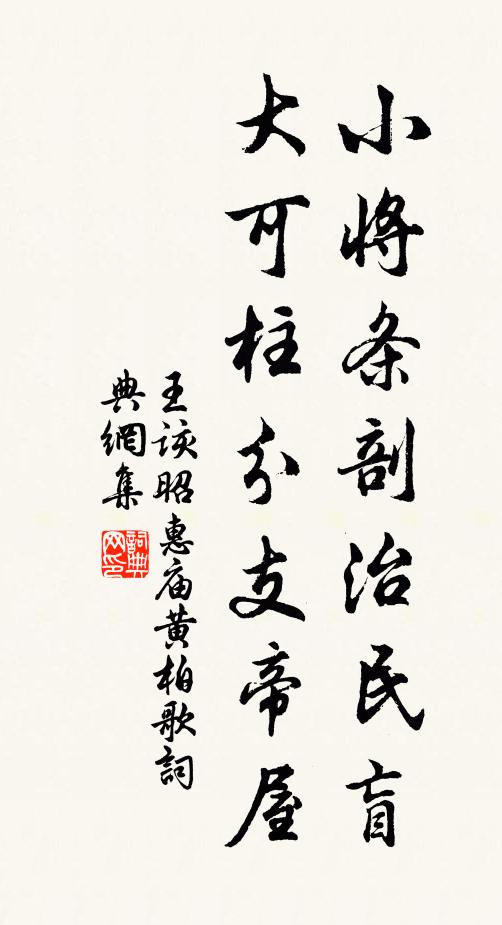 小將条剖治民盲
大可柱分支帝屋
王該昭惠庙黄柏歌詞
典網集
詞典
网印